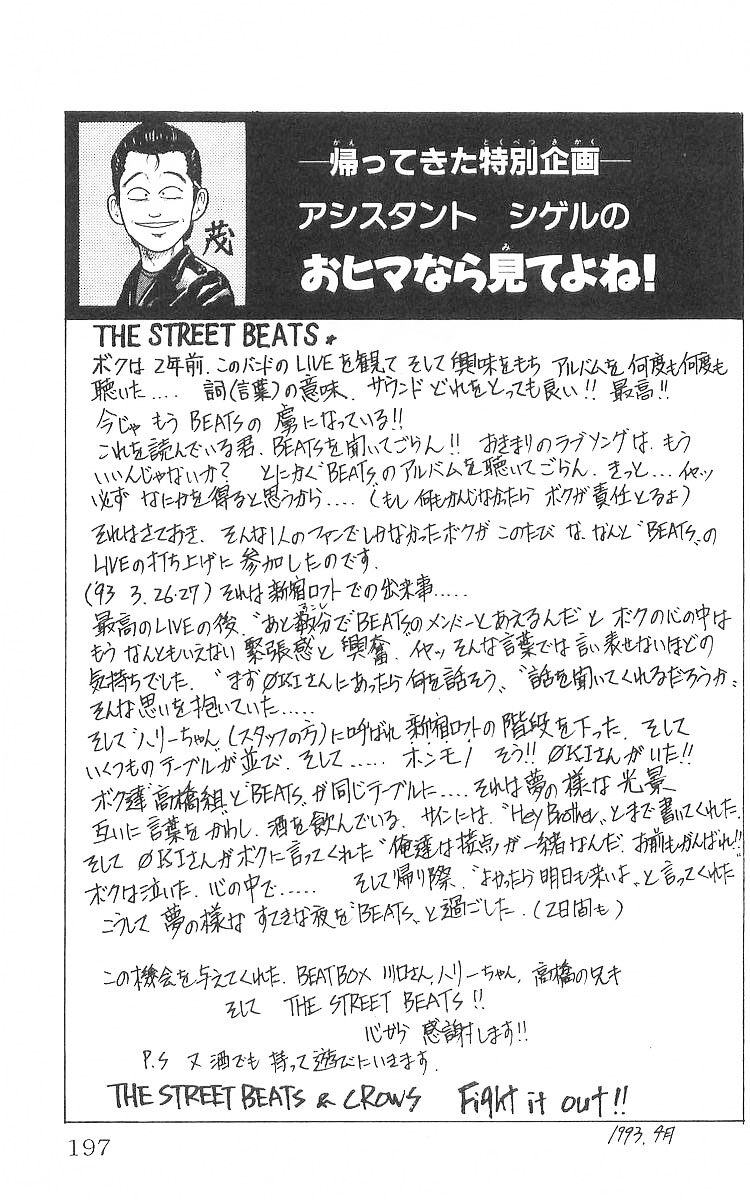 ―帰ってきた特別企画―
アシスタント シゲルの
おヒマなら見てよね!
茂
THE STREET BEATS☆
ボクは2年前、このバンドのLIVEを観て そして興味をもち アルバムを何度も何度も
聴いた‥‥ 詞(言葉)の意味、サウンド どれをとっても良い!! 最高!!
今じゃ もう BEATSの 虜になっている!!
これを読んでいる君、BEATSを聞いてごらん!! おきまりのラブソングは、もう
いいんじゃないか? とにかく"BEATS"のアルバムを聴いてごらん、きっと‥‥イヤッ
必ず なにかを得ると思うから‥‥‥(もし何もかんじなかったら ボクが責任とるよ)
それはさておき、そんな1人のファンでしかなかったボクが このたび な、なんと"BEATS"の
LIVEの打ち上げに参加したのです。
('93 3.26・27) それは新宿ロフトでの出来事‥‥‥
最高のLIVEの後、"あと数分でBEATSのメンバーとあえるんだ"と ボクの心の中は
もう なんともいえない 緊張感と興奮、イヤッ そんな言葉では言い表せないほどの
気持ちでした。"まずØKIさんにあったら何を話そう""話を聞いてくれるだろうか"
そんな思いを抱いていた‥‥‥
そして"ハリーちゃん"(スタッフの方)に呼ばれ 新宿ロフトの階段を下った、そして
いくつものテーブルが並び、そして‥‥‥ ホンモノ そう!! ØKIさんがいた!!
ボク達"高橋組"と"BEATS"が同じテーブルに‥‥それは夢の様な光景
互いに言葉をかわし、酒を飲んでいる、サインには、"Hey Brother"とまで書いてくれた。
そして ØKIさんがボクに言ってくれた"俺達は接点が一緒なんだ、お前もがんばれ!!"
ボクは泣いた、心の中で‥‥‥ そして帰り際、"よかったら明日も来いよ"と言ってくれた
こうして 夢の様な すてきな夜を"BEATS"と過ごした。(2日間も)
この機会を与えてくれた、BEATBOX 川口さん、ハリーちゃん、高橋の兄キ
そして THE STREET BEATS!!
心から 感謝します!!
P.S 又 酒でも 持って遊びにいきます。
THE STREET BEATS & CROWS Fight it out!!
1993.4月
197